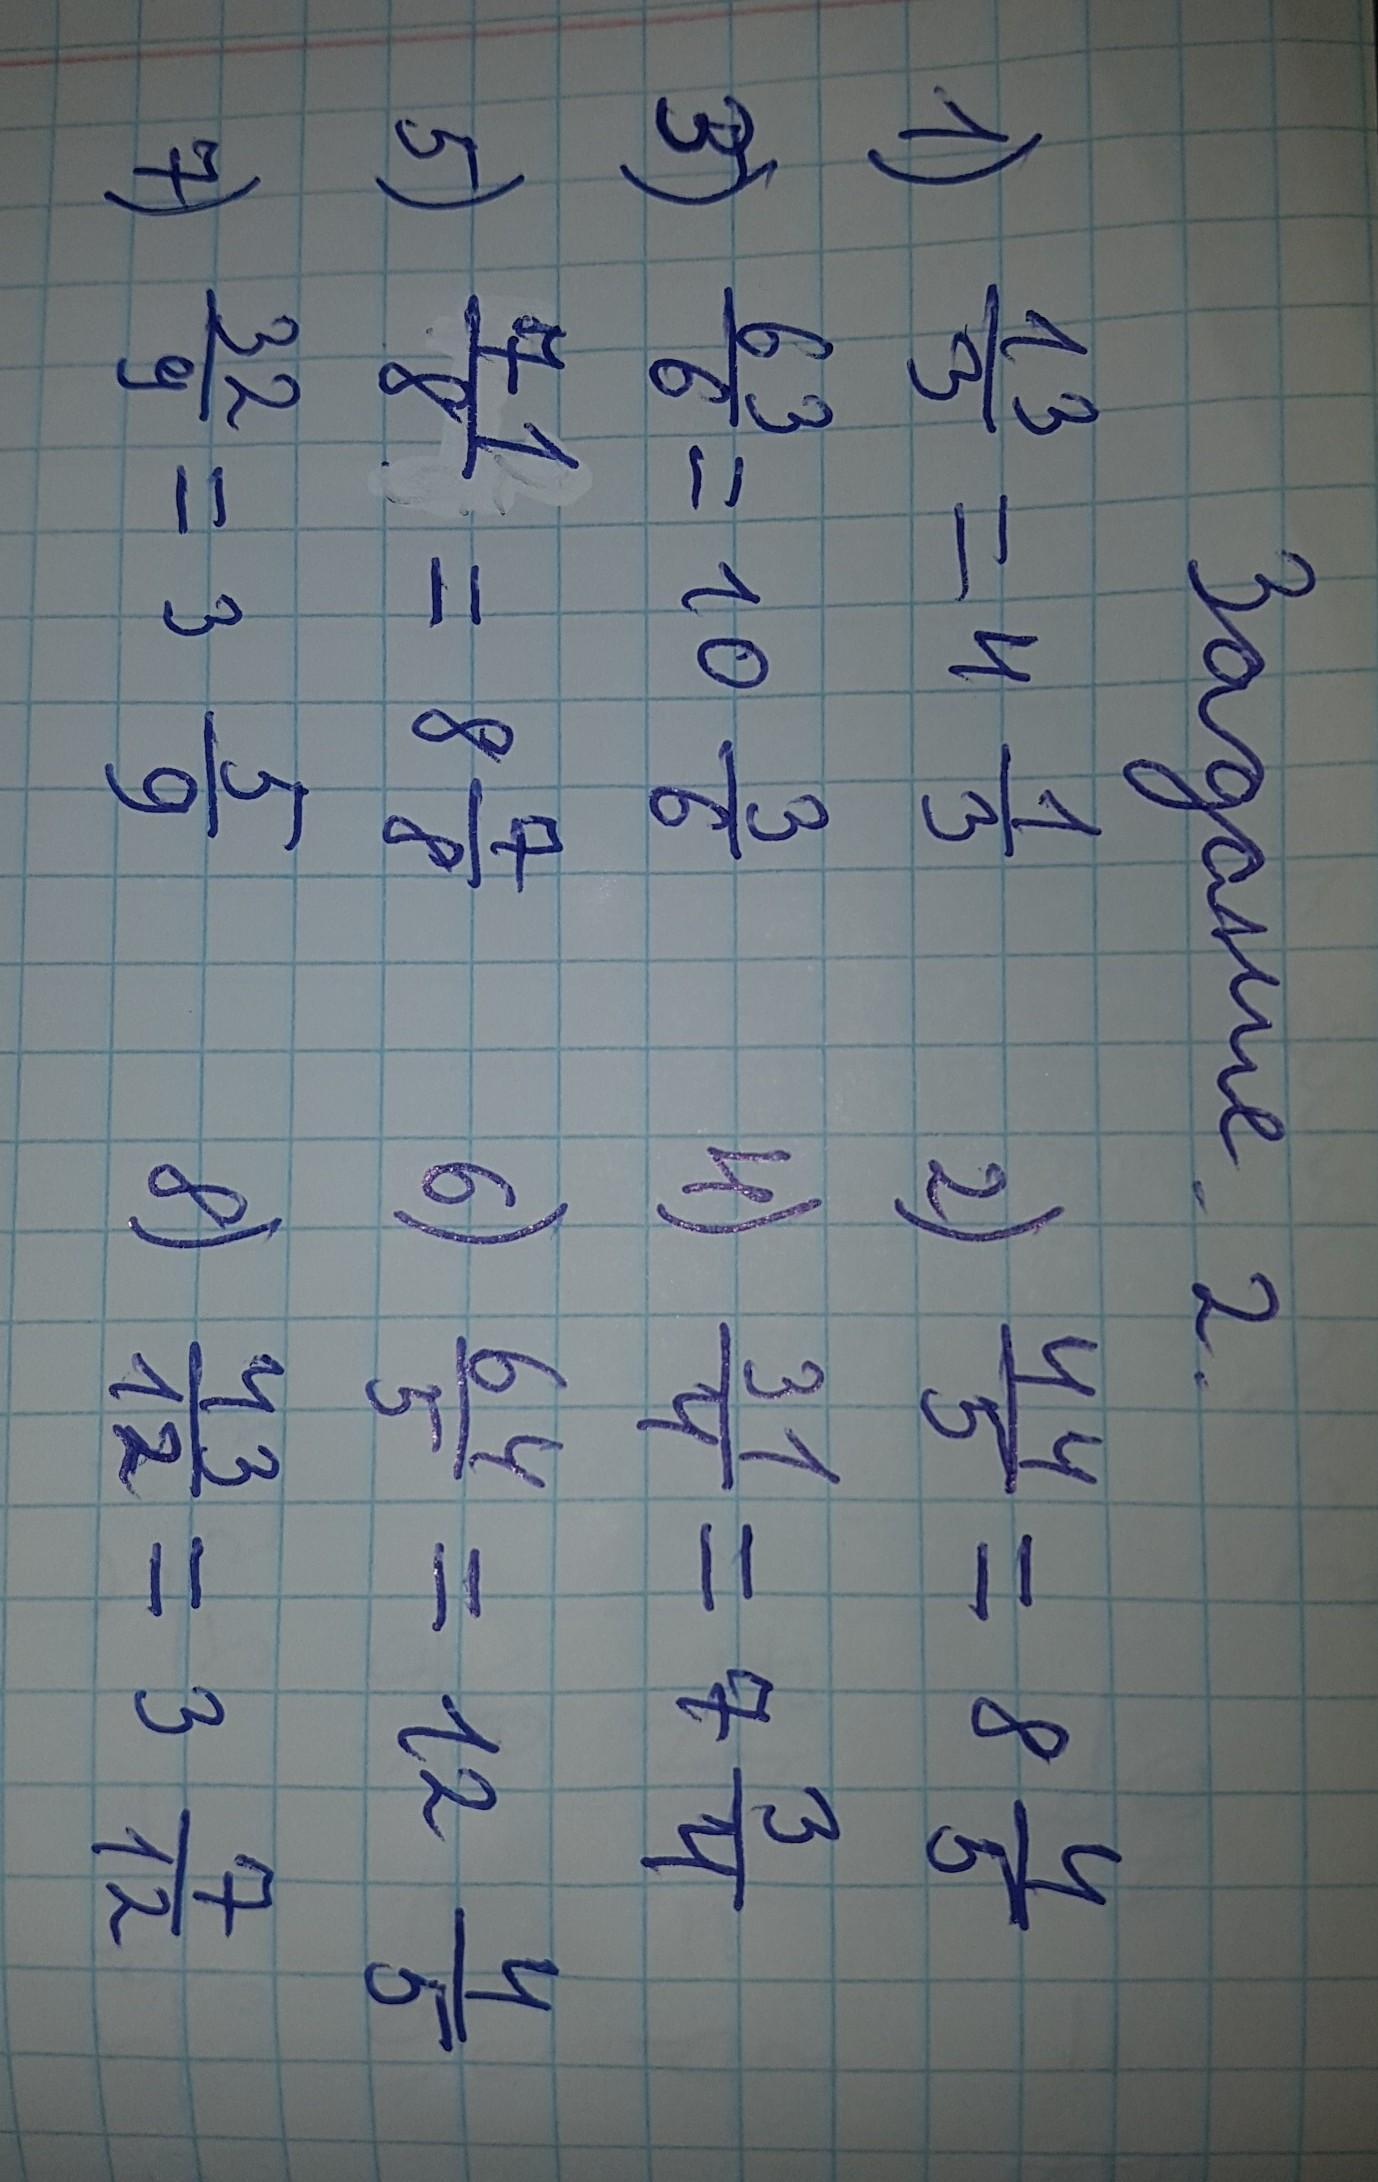 Задание 2.
1) 13/3 = 4 1/3 2) 44/5 = 8 4/5
3) 63/6 = 10 3/6 4) 31/4 = 7 3/4
5) 71/8 = 8 7/8 6) 64/5 = 12 4/5
7) 32/9 = 3 5/9 8) 43/12 = 3 7/12